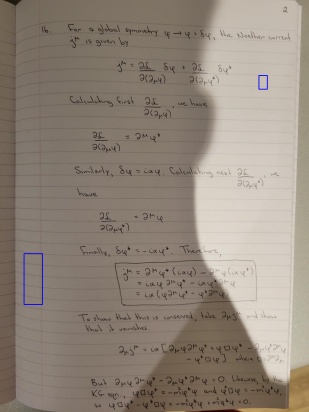 2
1b. For a global symmetry ψ → ψ + δψ, the Noether current
j^μ is given by
j^μ = ∂ℒ/∂(∂_μψ) δψ + ∂ℒ/∂(∂_μψ*) δψ*
Calculating first ∂ℒ/∂(∂_μψ), we have
∂ℒ/∂(∂_μψ) = ∂^μψ*
Similarly, δψ = iαψ. Calculating next ∂ℒ/∂(∂_μψ*), we
have
∂ℒ/∂(∂_μψ*) = ∂^μψ
Finally, δψ* = -iαψ*. Therefore,
j^μ = ∂^μψ*(iαψ) - ∂^μψ(iαψ*)
= iαψ∂^μψ* - iαψ*∂^μψ
= iα(ψ∂^μψ* - ψ*∂^μψ)
To show that this is conserved, take ∂_μj^μ and show
that it vanishes.
∂_μj^μ = iα[∂_μψ∂^μψ* + ψ□ψ* - ∂_μψ*∂^μψ
- ψ*□ψ] where
But ∂_μψ∂^μψ* - ∂_μψ*∂^μψ = 0. Likewise, by the
KG eqn., ψ□ψ* = -m²ψψ* and ψ*□ψ = -m²ψ*ψ,
so ψ□ψ* - ψ*□ψ = -m²ψψ* + m²ψψ* = 0.